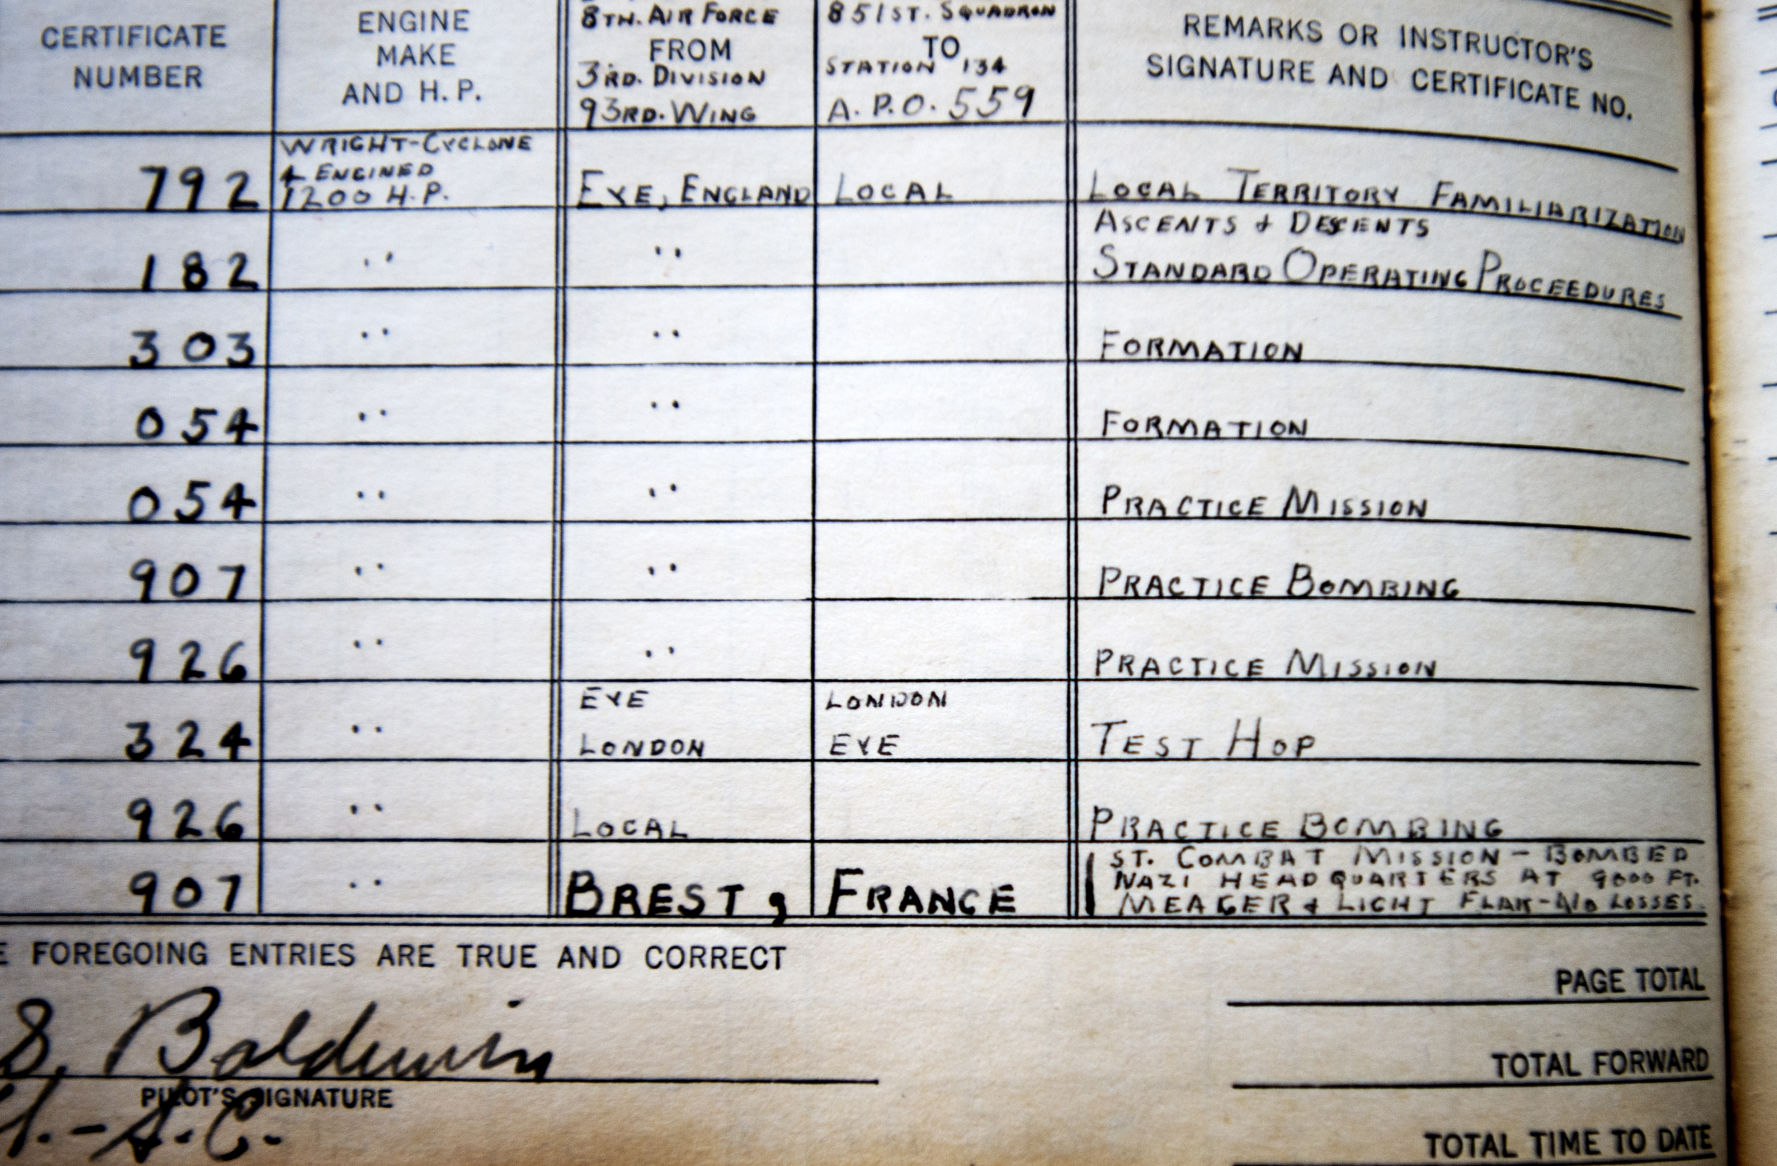 CERTIFICATE
NUMBER
ENGINE
MAKE
AND H. P.
8TH. AIR FORCE
FROM
3RD. DIVISION
93RD. WING
851ST. SQUADRON
TO
STATION 134
A. P. O. 559
REMARKS OR INSTRUCTOR'S
SIGNATURE AND CERTIFICATE NO.
792
WRIGHT-CYCLONE
4 ENGINED
1200 H.P.
EYE, ENGLAND
LOCAL
LOCAL TERRITORY FAMILIARIZATION
182
" "
ASCENTS & DESCENTS
STANDARD OPERATING PROCEEDURES
303
" "
FORMATION
054
" "
FORMATION
054
" "
PRACTICE MISSION
907
" "
PRACTICE BOMBING
926
" "
PRACTICE MISSION
324
"
EYE
LONDON
LONDON
EYE
TEST HOP
926
"
LOCAL
PRACTICE BOMBING
907
"
BREST, FRANCE
1ST. COMBAT MISSION - BOMBED
NAZI HEADQUARTERS AT 9000 FT.
MEAGER & LIGHT FLAK-NO LOSSES.
E FOREGOING ENTRIES ARE TRUE AND CORRECT
S. Baldwin
PILOT'S SIGNATURE
PAGE TOTAL
TOTAL FORWARD
TOTAL TIME TO DATE